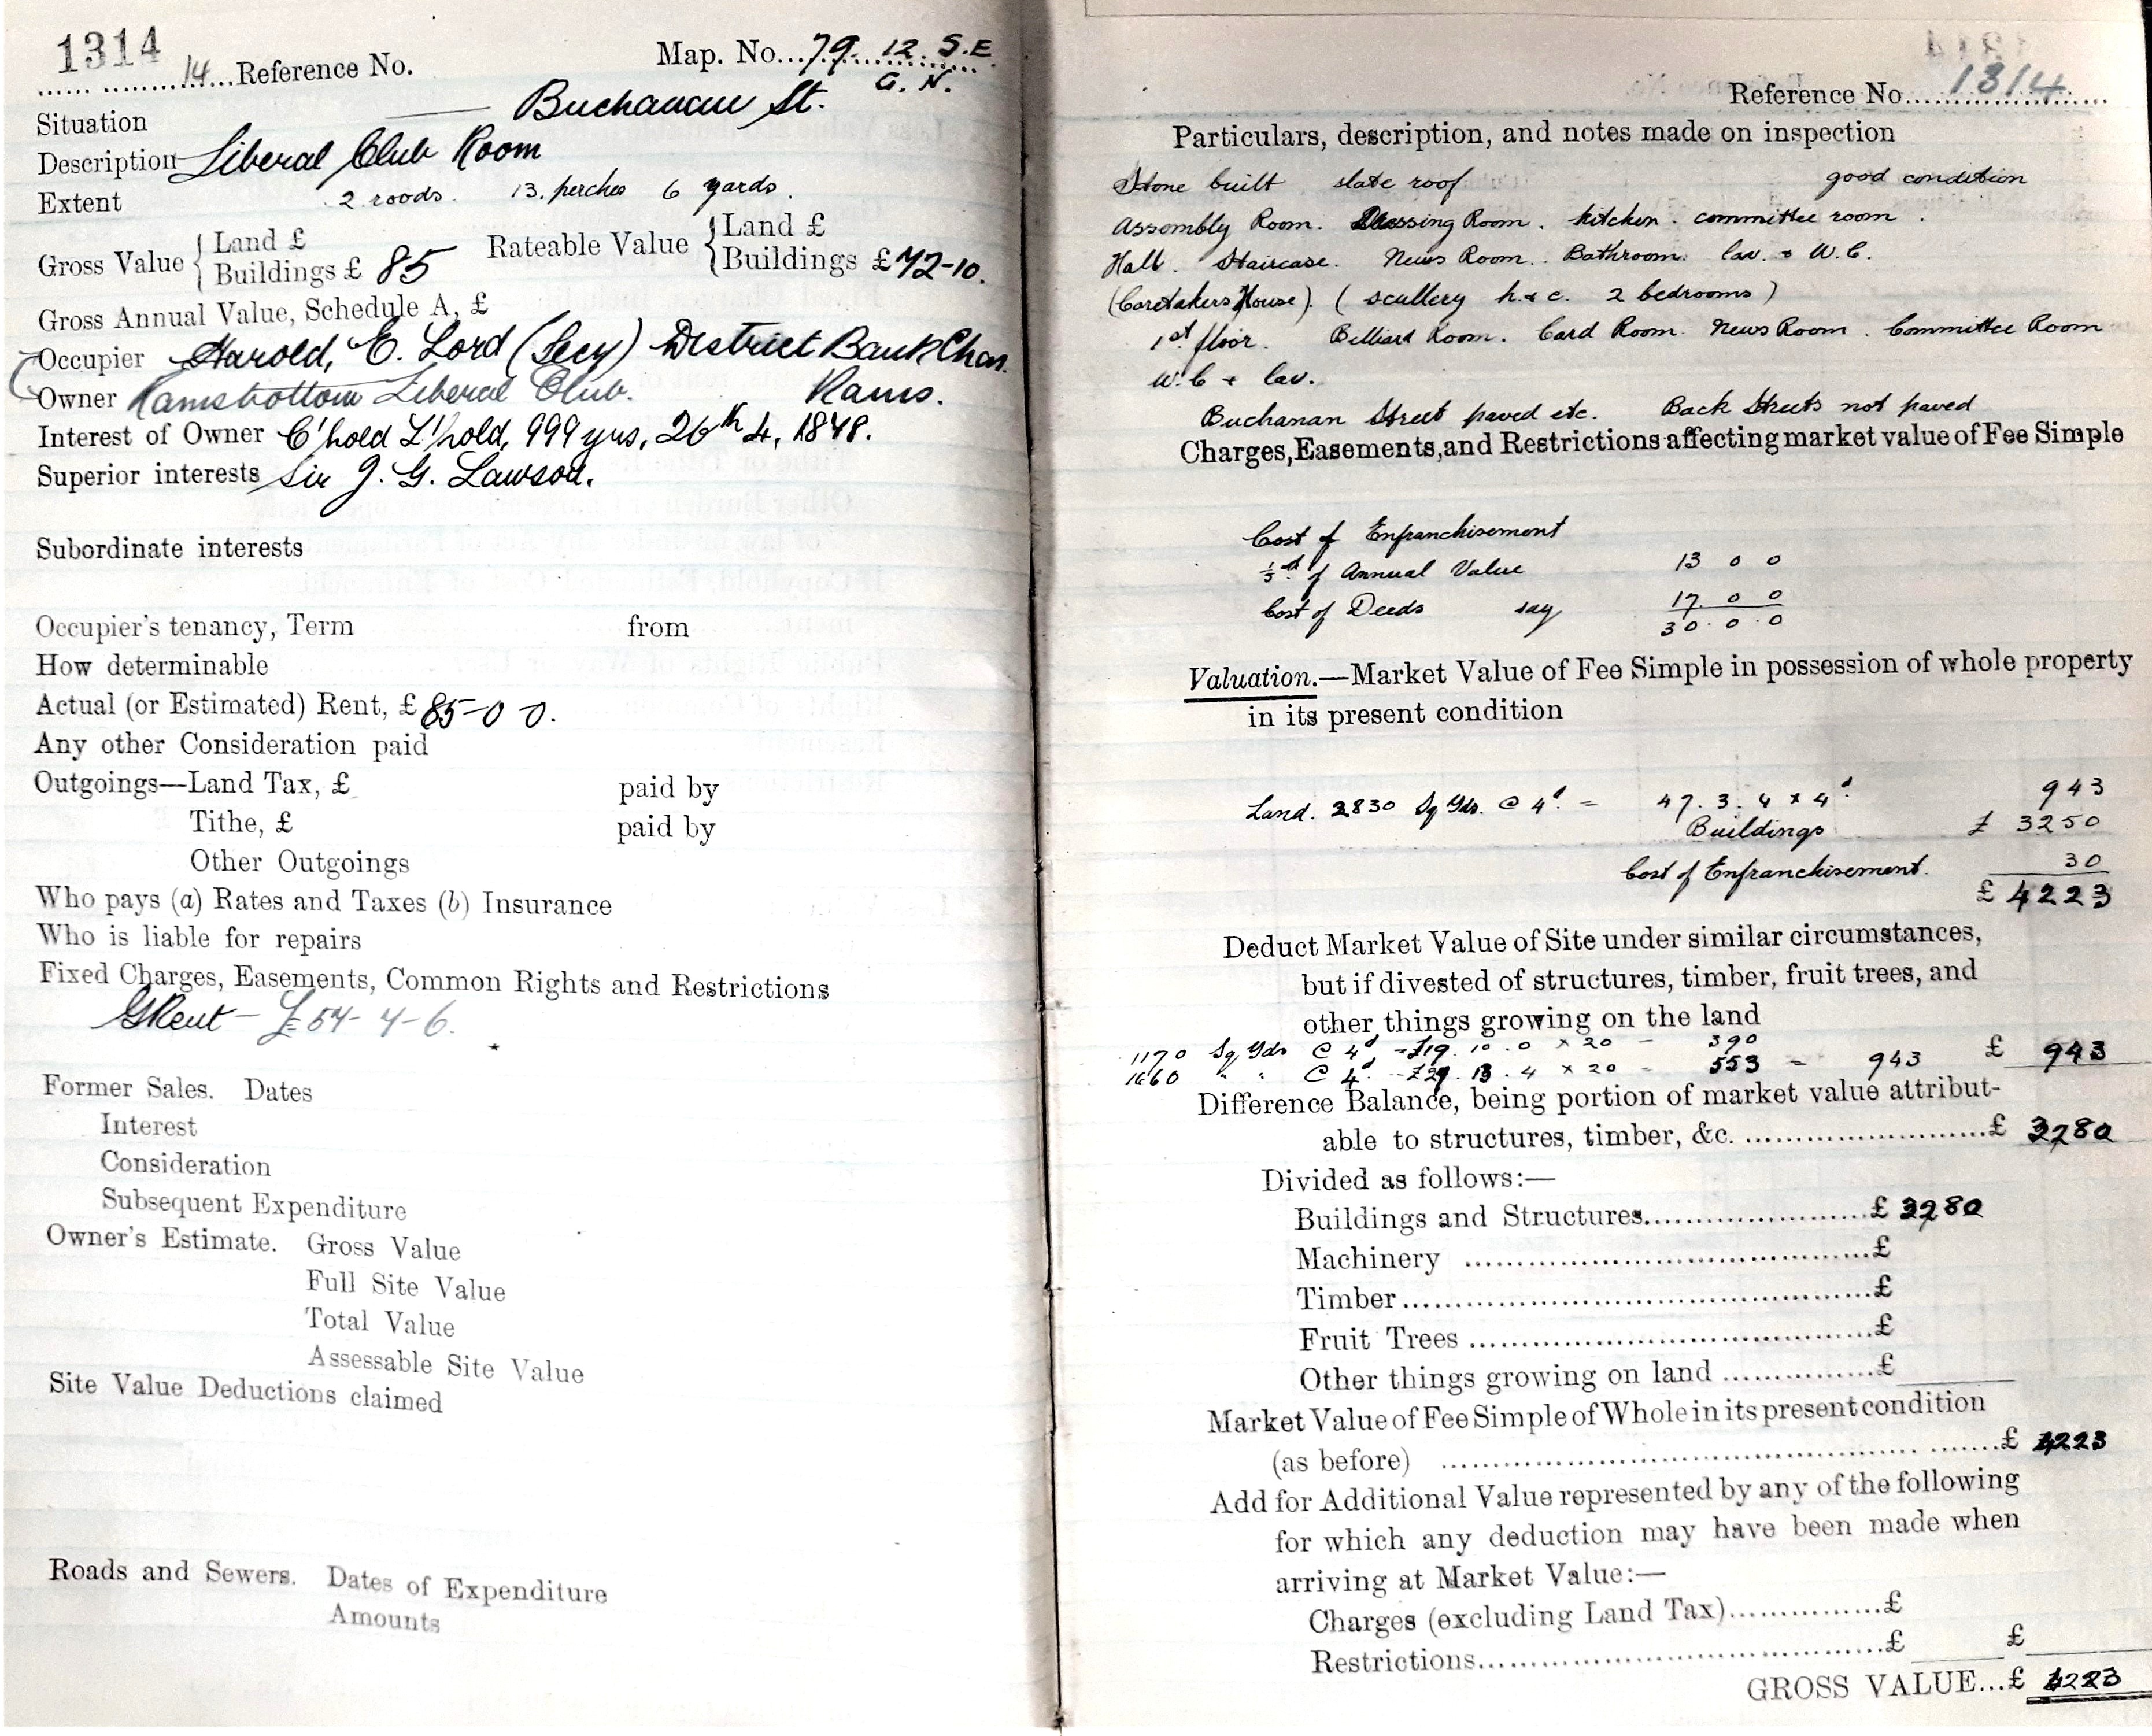 1314
14 Reference No. Map. No. 79. 12. S.E.
G. N.
Situation Buchanan St.
Description Liberal Club Room
Extent 2 roods. 13. perches 6 yards.
Gross Value { Land £ Rateable Value { Land £
Buildings £ 85 Buildings £ 72-10.
Gross Annual Value, Schedule A, £
Occupier Harold, E. Lord (Secy) District Bank Cham.
Owner Ramsbottom Liberal Club. Rams.
Interest of Owner C'hold L'hold, 999 yrs, 26th 4, 1848.
Superior interests Sir J. G. Lawson.
Subordinate interests
Occupier's tenancy, Term from
How determinable
Actual (or Estimated) Rent, £ 85-0 0.
Any other Consideration paid
Outgoings—Land Tax, £ paid by
Tithe, £ paid by
Other Outgoings
Who pays (a) Rates and Taxes (b) Insurance
Who is liable for repairs
Fixed Charges, Easements, Common Rights and Restrictions
GRent - £54-4-6.
Former Sales. Dates
Interest
Consideration
Subsequent Expenditure
Owner's Estimate. Gross Value
Full Site Value
Total Value
Assessable Site Value
Site Value Deductions claimed
Roads and Sewers. Dates of Expenditure
Amounts
Reference No. 1314
Particulars, description, and notes made on inspection
Stone built slate roof good condition
Assembly Room. Dressing Room. kitchen. committee room.
Hall. Staircase. News Room. Bathroom. lav. & W.C.
(Caretakers House). (scullery h. & c. 2 bedrooms)
1st floor. Billiard Room. Card Room. News Room. Committee Room
W.C + lav.
Buchanan Street paved etc. Back Streets not paved
Charges, Easements, and Restrictions affecting market value of Fee Simple
Cost of Enfranchisement
of Annual Value 13 0 0
Cost of Deeds say 17. 0 0
30. 0. 0
Valuation.—Market Value of Fee Simple in possession of whole property
in its present condition
Land. 2830 Sq Yds. @ 4d. = 47. 3. 4 x 4d. 943
Buildings £ 3250
Cost of Enfranchisement. 30
£ 4223
Deduct Market Value of Site under similar circumstances,
but if divested of structures, timber, fruit trees, and
other things growing on the land
1170 Sq Yds @ 4d - £19. 10. 0 x 20 - 390
1660 " " @ 4d. - £27. 13. 4 x 20 - 553 - 943 £ 943
Difference Balance, being portion of market value attribut-
able to structures, timber, &c. £ 3280
Divided as follows:—
Buildings and Structures £ 3280
Machinery £
Timber £
Fruit Trees £
Other things growing on land £
Market Value of Fee Simple of Whole in its present condition
(as before) £ 4223
Add for Additional Value represented by any of the following
for which any deduction may have been made when
arriving at Market Value:—
Charges (excluding Land Tax) £
Restrictions £ £
GROSS VALUE... £ 4223